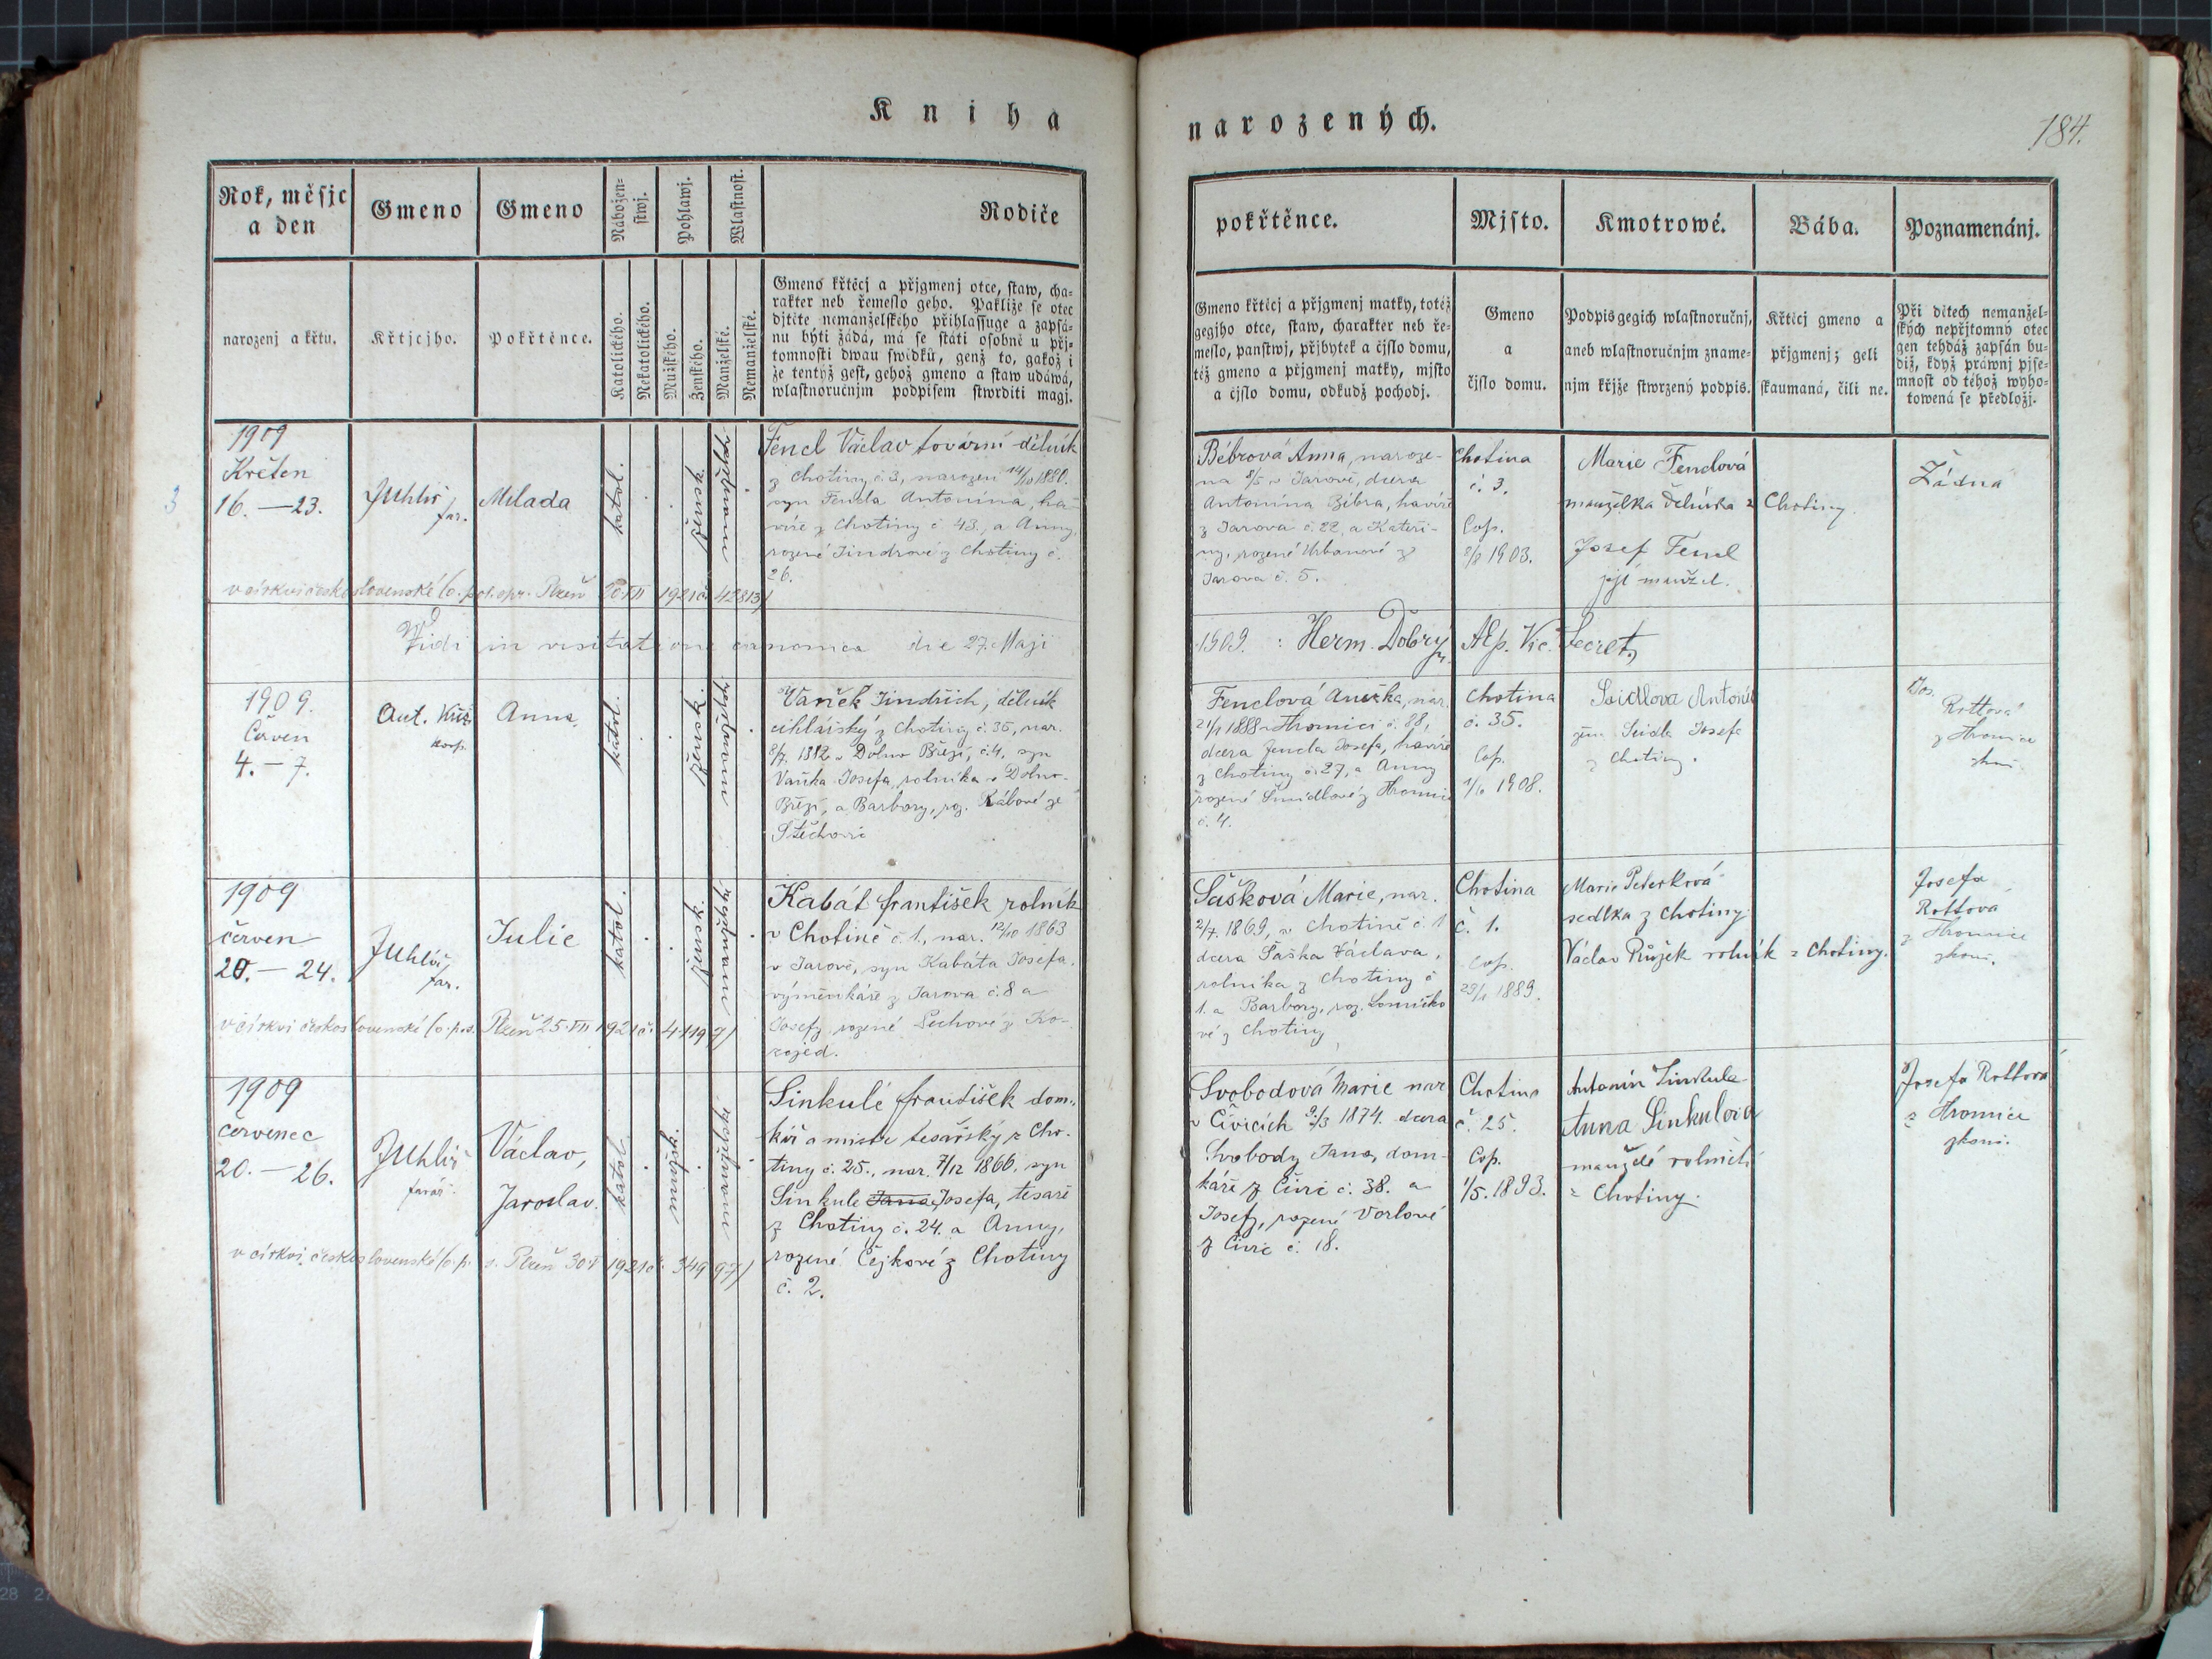 Kniha
narozených.
184.
Rok, měsjc a den
Gmeno
Gmeno
Nábožen-stwj.
Pohlawj.
Wlastnost.
Rodiče
pokřtěnce.
Mjsto.
Kmotrowé.
Bába.
Poznamenánj.
narozenj a křtu.
Křtjcjho.
Pokřtěnce.
Katolického.
Nekatolického.
Mužského.
Ženského.
Manželské.
Nemanželské.
Gmeno křtěcj a přjgmenj otce, staw, cha-
rakter neb řemeslo geho. Pakliže se otec
djtěte nemanželského přihlassuge a zapsá-
nu býti žádá, má se státi osobně u přj-
tomnosti dwau swědků, genž to, gakož i
že tentýž gest, gehož gmeno a staw udáwá,
wlastnoručnjm podpisem stwrditi magj.
Gmeno křtěcj a přjgmenj matky, totéž
gegjho otce, staw, charakter neb ře-
meslo, panstwj, přjbytek a čjslo domu,
též gmeno a přjgmenj matky, mjsto
a čjslo domu, odkudž pocházj.
Gmeno
a
čjslo domu.
Podpis gegich wlastnoručnj,
aneb wlastnoručnjm zname-
njm křjže stwrzený podpis.
Křtěcj gmeno a
přjgmenj; geli
skaumaná, čili ne.
Při dětech nemanžel-
ských nepřjtomný otec
gen tehdáž zapsán bu-
diž, když práwnj pjse-
mnost od téhož wyho-
towená se předložj.
3
1909
Květen
16. — 23.
JUhlíř
far.
Milada
katol.
žensk.
manželské
Fencl Václav tovární dělník
z Chotiny č. 3, narozen 14/10 1880.
syn Fencla Antonína, ha-
víře z Chotiny č. 43, a Anny,
rozené Jindrové z Chotiny č.
26.
Bébrová Anna, naroze-
na 8/5 v Jarově, dcera
Antonína Bébra, havíře
z Jarova č. 22, a Kateři-
ny, rozené Urbanové z
Jarova č. 5.
Chotina
č. 3.
Cop.
8/8 1903.
Marie Fenclová
manželka dělníka z Chotiny
Josef Fencl
její manžel.
Žádná
v církvi československé (o. pol. spr. Plzeň 20.VII 1921 č. 42813)
Vidi in visitatione canonica die 27. Maji
1909. : Herm. Dobrý Aep. Vic. Secret.
1909.
Červen
4. — 7.
Ant. Kříž
koop.
Anna
katol.
žensk.
manželské
Vaněk Jindřich, dělník
cihlářský z Chotiny č. 35, nar.
8/7. 1882 v Dolno Březí, č. 4, syn
Vaňka Josefa, rolníka v Dolno-
Březí, a Barbory, roz. Rábové ze
Štěchovic
Fenclová Anežka, nar.
21/1 1888 v Hromici č. 88,
dcera Fencla Josefa, havíře
z Chotiny č. 27, a Anny
rozené Šmídlové z Hromnic
č. 4.
Chotina
č. 35.
Cop.
1/6 1908.
Seidlova Antonie
žena Seidla Josefa
z Chotiny.
Jos.
Rottová
z Hromice
zkouš.
1909
červen
20. — 24.
JUhlíř,
far.
Julie
katol.
žensk.
manželské
Kabát František rolník
v Chotině č. 1., nar. 12/10 1863
v Jarově, syn Kabáta Josefa,
výměnkáře z Jarova č. 8 a
Josefy rozené Lechové z Ko-
zojed.
Šašková Marie, nar.
2/7. 1869, v Chotině č. 1
dcera Šaška Václava,
rolníka z Chotiny č
1. a Barbory, roz. Lomičko
vé z Chotiny
Chotina
č. 1.
Cop.
29/1 1889.
Marie Peterková
sedlka z Chotiny.
Václav Růžek rolník z Chotiny.
Josefa
Rottova
z Hromnice
zkouš.
v církvi československé (o. p. s. Plzeň 25.VII 1921 č. 41197)
1909
červenec
20. — 26.
JUhlíř
farář.
Václav,
Jaroslav.
katol.
mužsk.
manželské
Sinkule František dom-
kář a mistr tesařský z Cho-
tiny č. 25., nar. 7/12 1866, syn
Sinkule Jana Josefa, tesaře
z Chotiny č. 24. a Anny,
rozené Čejkové z Chotiny
č. 2.
Svobodová Marie nar
v Čivicích 9/3 1874. dcera
Svobody Jana, dom-
káře z Čivic č. 38. a
Josefy, rozené Vorlové
z Čivic č. 18.
Chotina
č. 25.
Cop.
1/5. 1893.
Antonín Sinkule
Anna Sinkulová
manželé rolničtí
z Chotiny.
Josefa Rottova
z Hromice
zkouš.
v církvi československé (o. p. s. Plzeň 30.V 1921 č. 34997)